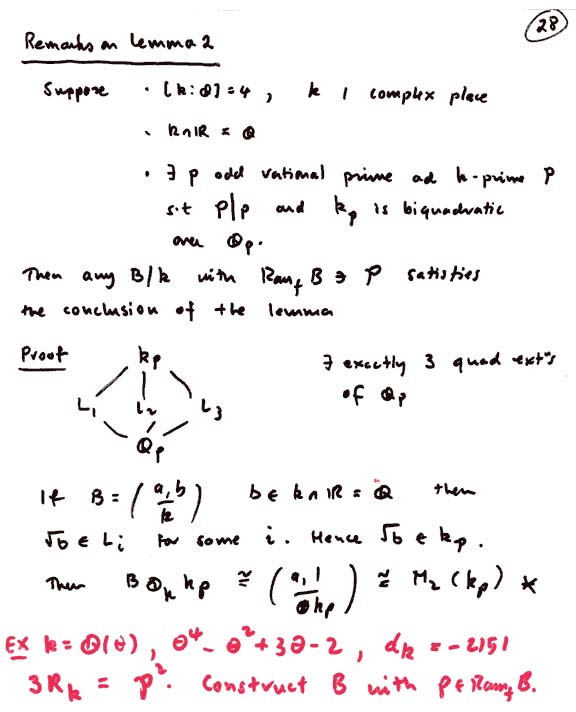 28
Remarks on Lemma 2
Suppose · [k:ℚ]=4, k 1 complex place
· k∩ℝ = ℚ
· ∃ p odd rational prime ad k-prime P
s.t P|p and k_P is biquadratic
over ℚ_p.
Then any B/k with Ram_f B ∋ P satisfies
the conclusion of the lemma
Proof k_P ∃ exactly 3 quad ext's
L_1 L_2 L_3 of ℚ_p
ℚ_p
If B = (a,b / k) b ∈ k∩ℝ = ℚ then
√b ∈ L_i for some i. Hence √b ∈ k_P.
Then B ⊗_k k_P ≅ (a,1 / k_P) ≅ M_2(k_P) *
Ex k = ℚ(θ), θ^4 - θ^2 + 3θ - 2, d_k = -2151
3R_k = P^2. Construct B with P ∈ Ram_f B.